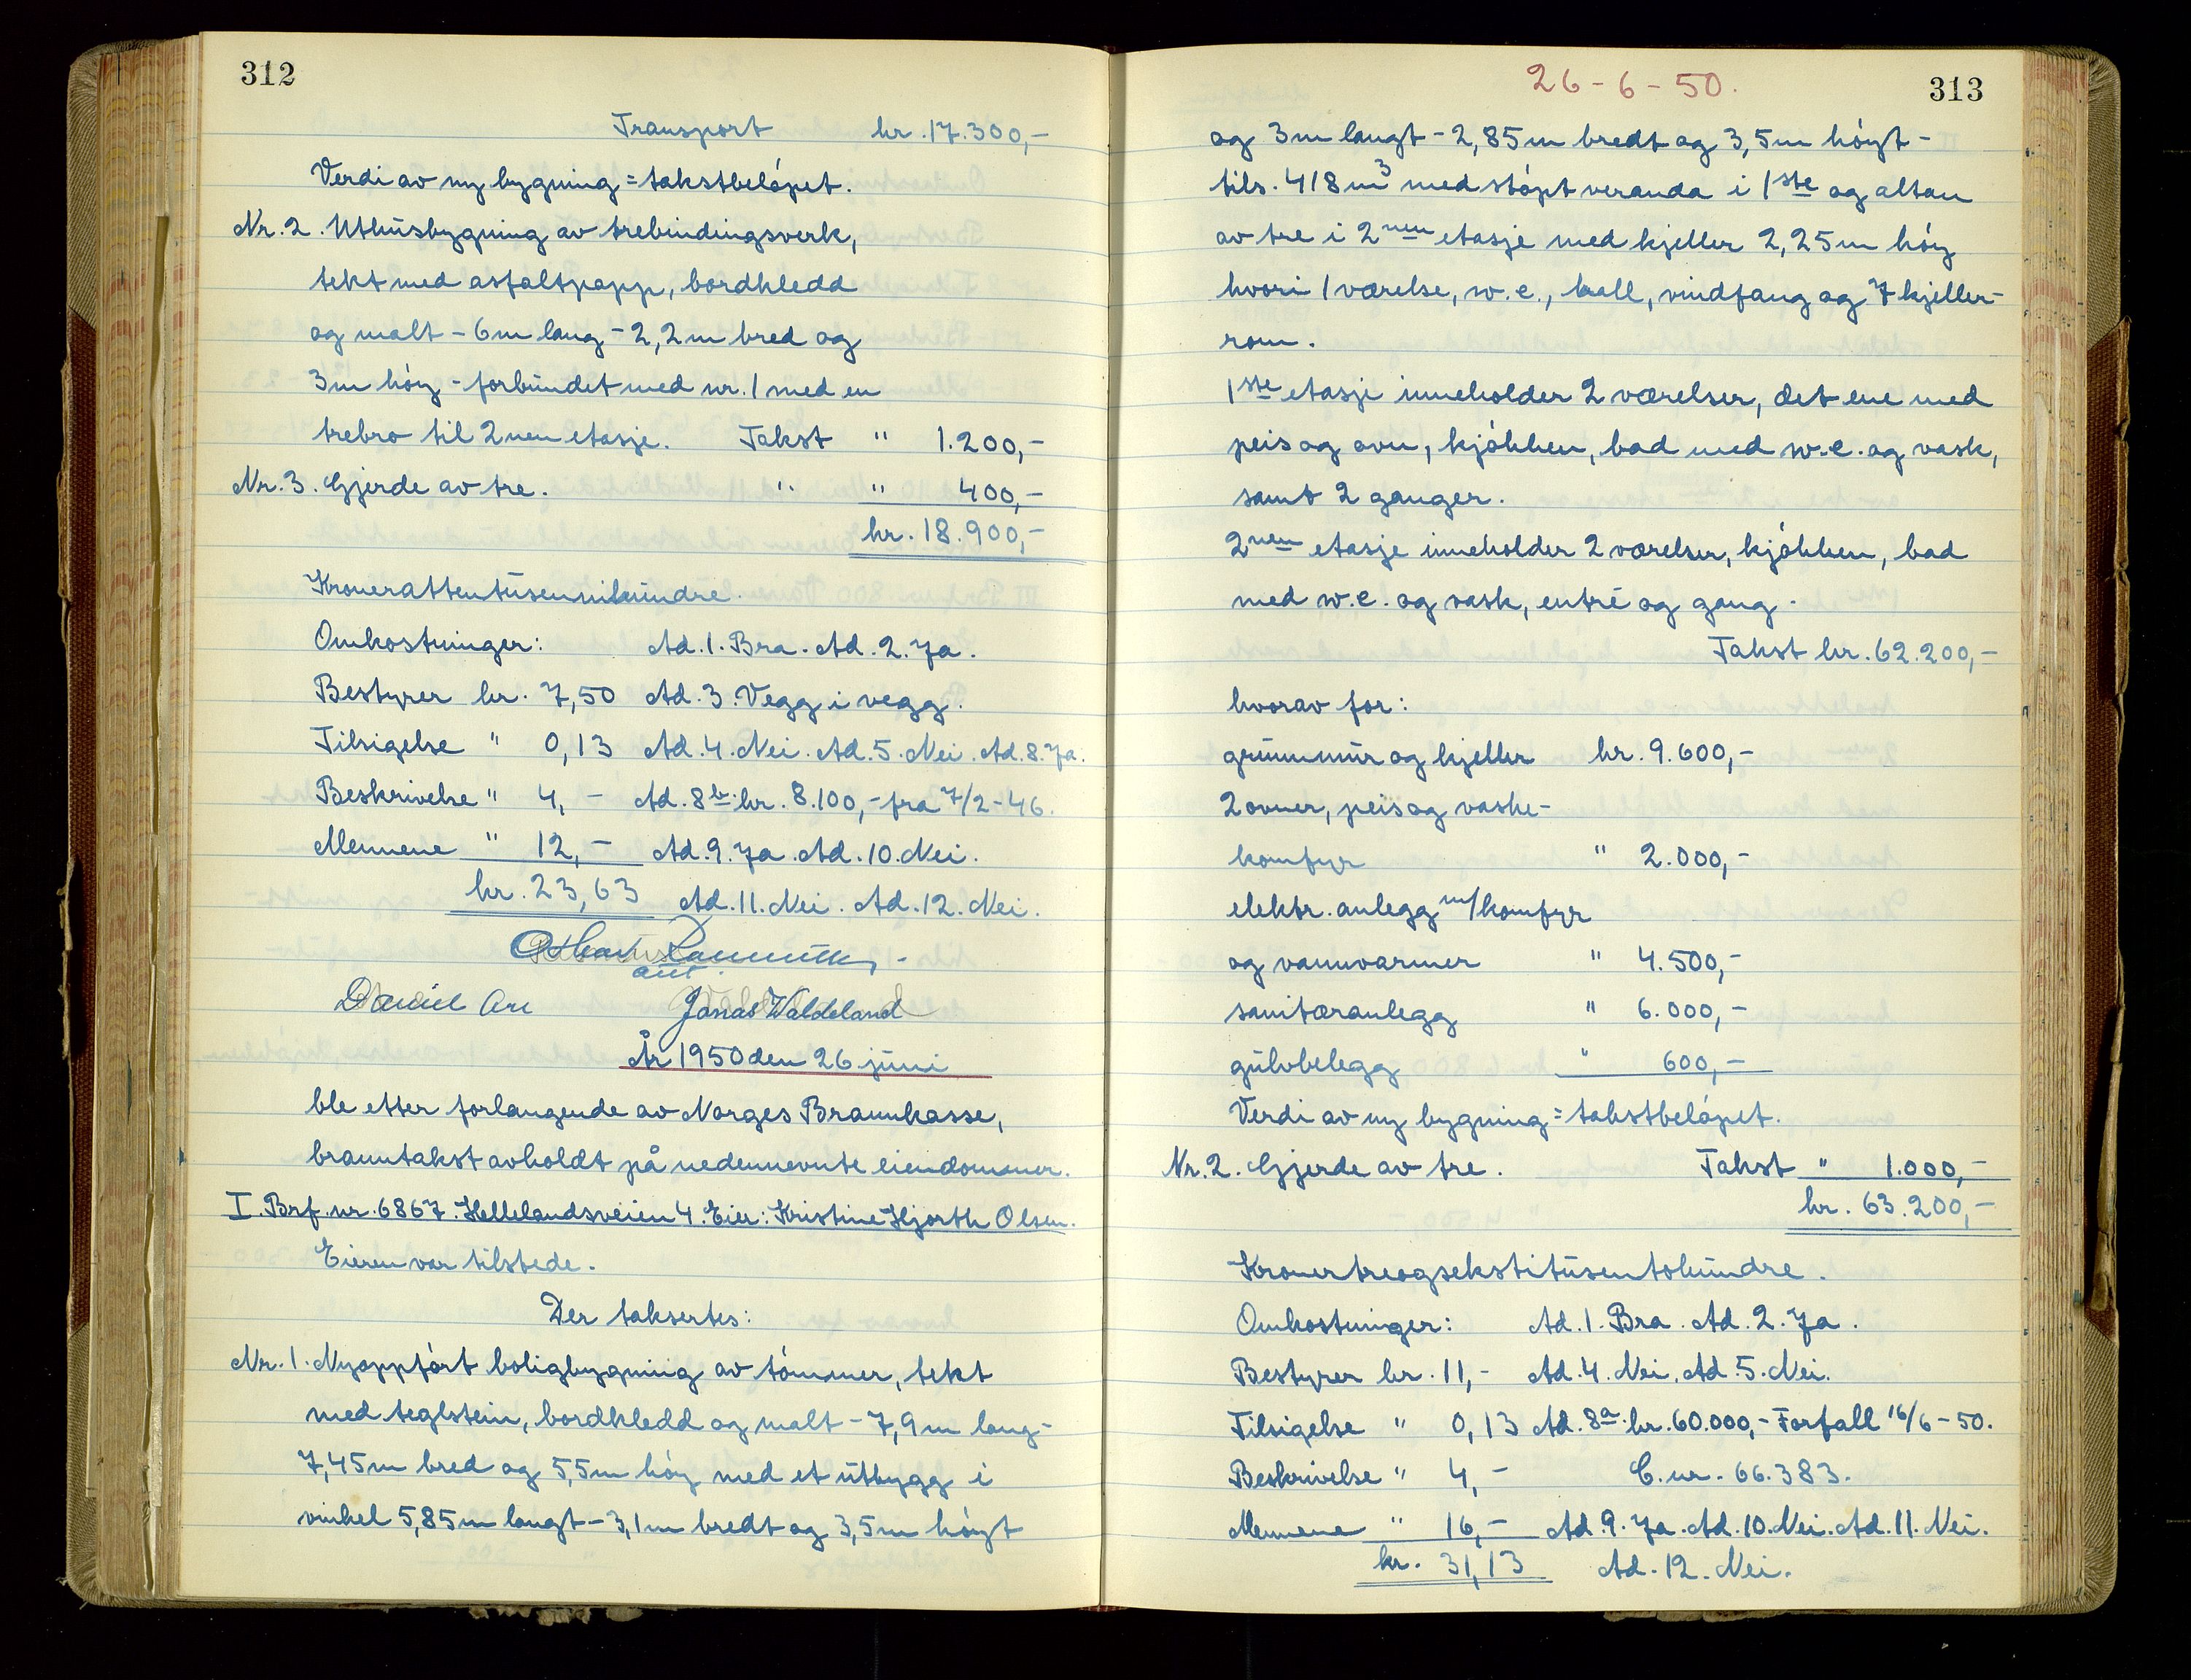 312
Transport kr. 17.300,-
Verdi av ny bygning = takstbeløpet.
Nr. 2. Uthusbygning av trebindingsverk,
tekt med asfaltpapp, bordkledd
og malt - 6m lang - 2,2m bred og
3m høy - forbundet med nr. 1 med en
trebro til 2nen etasje. Takst " 1.200,-
Nr. 3. Gjerde av tre. " " 400,-
kr. 18.900,-
Kronerattentusennihundre.
Omkostninger: Ad. 1. Bra. Ad. 2. Ja.
Bestyrer kr. 7,50 Ad. 3. Vegg i vegg.
Tilsigelse " 0,13 Ad. 4. Nei. Ad. 5. Nei. Ad. 8. Ja.
Beskrivelse " 4,- Ad. 8b. kr. 8.100,- fra 7/2-46.
Mennene " 12,- Ad. 9. Ja. Ad. 10. Nei.
kr. 23,63 Ad. 11. Nei. Ad. 12. Nei.
Daniel Jonas Valdeland
År 1950 den 26 juni
ble etter forlangende av Norges Brannkasse,
branntakst avholdt på nedennevnte eiendommer.
I. Brf. nr. 6867. Hellelandsveien 4. Eier: Kristine Hjorth Olsen.
Eieren var tilstede.
Der taksertes:
Nr. 1. Nyoppført boligbygning av tømmer, tekt
med teglstein, bordkledd og malt - 7,9m lang -
7,45m bred og 5,5m høy med et utbygg i
vinkel 5,85m langt - 3,1m bredt og 3,5m høyt
26-6-50.
313
og 3m langt - 2,85m bredt og 3,5m høyt -
tils. 418 m3 med støpt veranda i 1ste og altan
av tre i 2nen etasje med kjeller 2,25m høy
hvori 1 værelse, w.c., hall, vindfang og 7 kjeller-
rom.
1ste etasje inneholder 2 værelser, det ene med
peis og ovn, kjøkken, bad med w.c. og vask,
samt 2 ganger.
2nen etasje inneholder 2 værelser, kjøkken, bad
med w.c. og vask, entré og gang.
Takst kr. 62.200,-
hvorav for:
grunnmur og kjeller kr. 9.600,-
2 ovner, peis og vaske-
komfyr " 2.000,-
elektr. anlegg m/komfyr
og vannvarmer " 4.500,-
sanitæranlegg " 6.000,-
gulvbelegg " 600,-
Verdi av ny bygning = takstbeløpet.
Nr. 2. Gjerde av tre. Takst " 1.000,-
kr. 63.200,-
Kronertreogsekstitusentohundre.
Omkostninger: Ad. 1. Bra. Ad. 2. Ja.
Bestyrer kr. 11,- Ad. 4. Nei. Ad. 5. Nei.
Tilsigelse " 0,13 Ad. 8a. kr. 60.000,- Forfall 16/6-50.
Beskrivelse " 4,- C. nr. 66.383.
Mennene " 16,- Ad. 9. Ja. Ad. 10. Nei. Ad. 11. Nei.
kr. 31,13 Ad. 12. Nei.